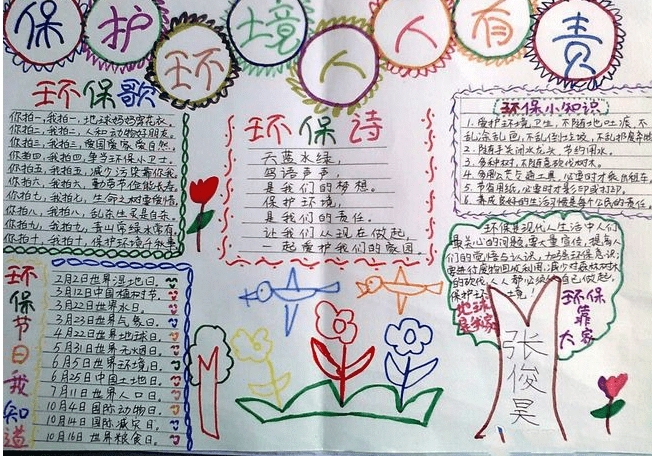 保护环境人人有责
环保歌
你拍一,我拍一,地球妈妈穿花衣。
你拍二,我拍二,人和动物好朋友。
你拍三,我拍三,爱国爱家爱自然。
你拍四,我拍四,争当环保小卫士。
你拍五,我拍五,减少污染靠你我。
你拍六,我拍六,勤栽节俭能长寿。
你拍七,我拍七,生命之树要爱惜。
你拍八,我拍八,乱杀生灵是自杀。
你拍九,我拍九,青山常绿水常有。
你拍十,我拍十,保护环境千秋事。
环保诗
天蓝水绿,
鸟语声声,
是我们的梦想。
保护环境,
是我们的责任。
让我们从现在做起,
一起爱护我们的家园。
环保小知识
1.爱护环境卫生,不随地吐痰,不
乱涂乱画,不乱倒垃圾,不乱排废弃物
2.随手关闭水龙头,节约用水。
3.多种树,不随意砍伐树木。
4.多用公共交通工具,必要时才乘出租车。
5.节省用纸,必要时才影印或打印。
6.养成良好的生活习惯是每个公民的责任。
环保是现代人生活中人们
最关心的问题,要大量宣传,提高人
们的觉悟与认识,加强环保意识;
的砍伐,人人都必须从自己做起,
保护环境
地球
是我家
环保
靠
大家
张俊昊
环保节日我知道
2月2日世界湿地日。
3月12日中国植树节。
3月22日世界水日。
3月23日世界气象日。
4月22日世界地球日。
5月31日世界无烟日。
6月5日世界环境日。
6月25日中国土地日。
7月11日世界人口日。
10月4日国际动物日。
10月14日国际减灾日。
10月16日世界粮食日。